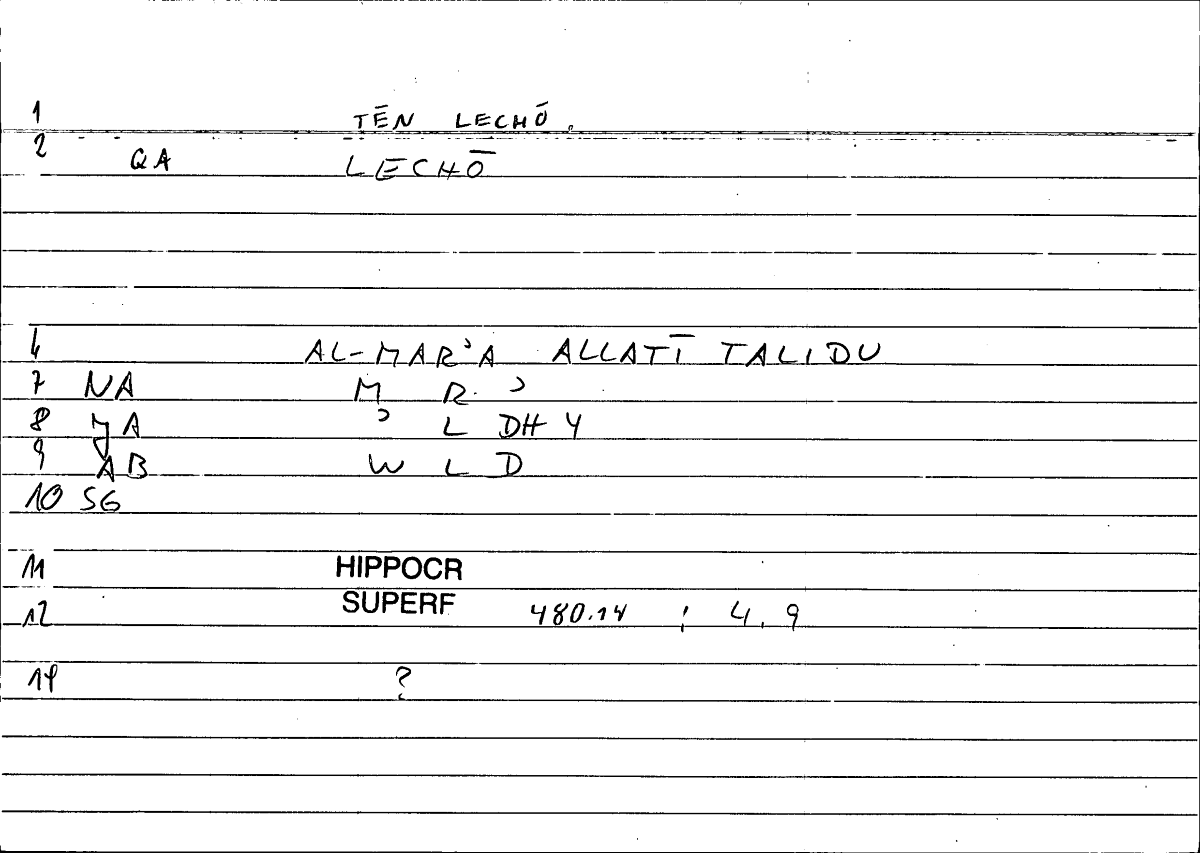 1 TĒN LECHŌ.
2 QA LECHŌ
4 AL-MARʾA ALLATĪ TALIDU
7 NA M R ʾ
8 JA ʾ L DH Y
9 AB W L D
10 SG
11 HIPPOCR
12 SUPERF 480.14 ; 4,9
14 ?